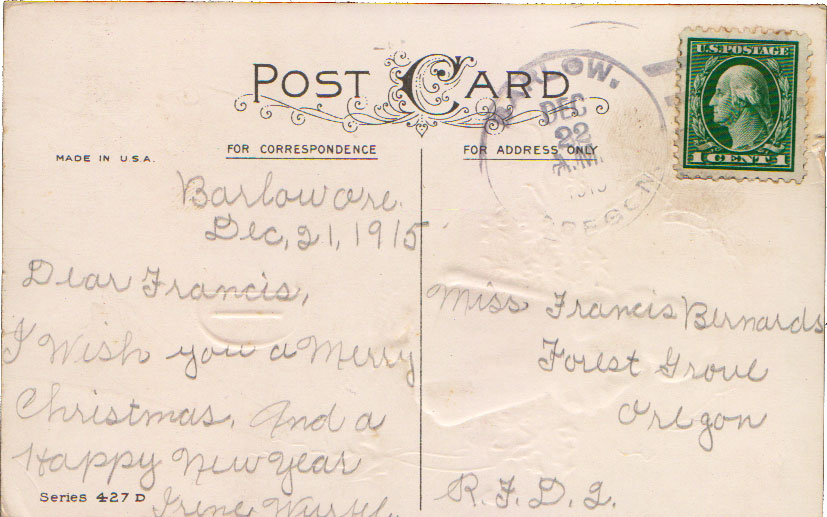 POST CARD
FOR CORRESPONDENCE
FOR ADDRESS ONLY
MADE IN U.S.A.
BARLOW,
DEC
22
A.M.
OREGON
U.S. POSTAGE
1 CENT 1
Barlow Ore.
Dec, 21, 1915
Dear Francis,
I Wish you a Merry
Christmas, And a
Happy New Year
Irene
Series 427 D
Miss Francis Bernards
Forest Grove
Oregon
R.F.D. 2.